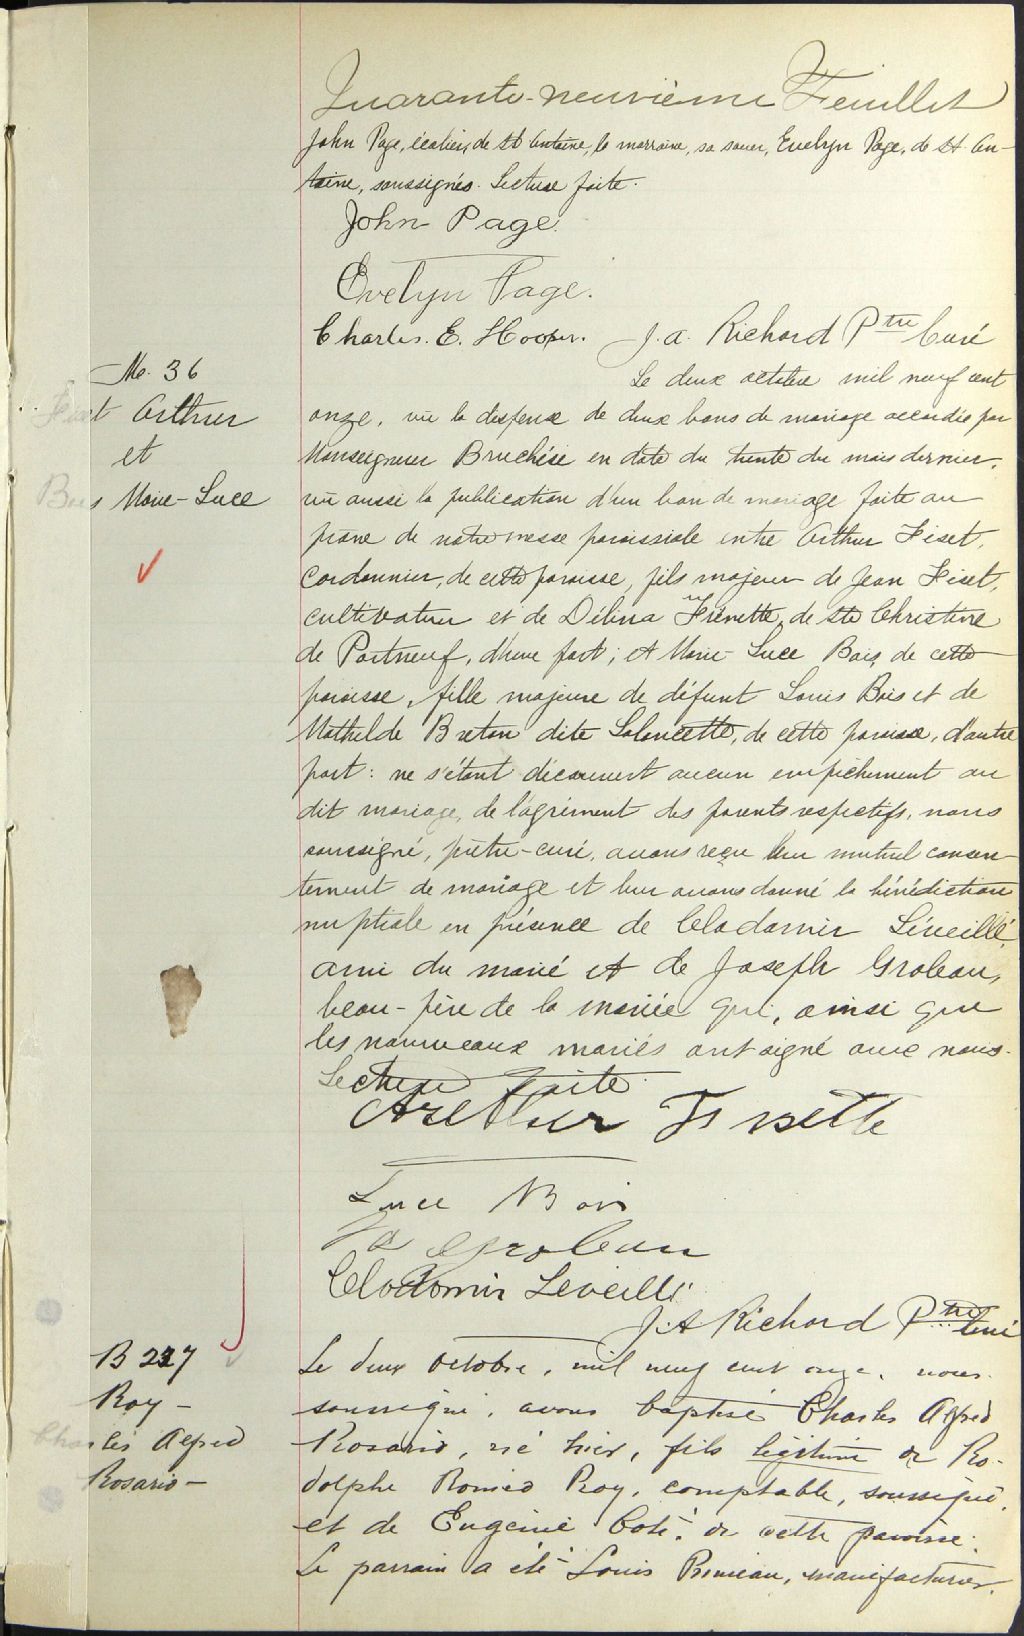 Quarante-neuvième Feuillet
John Page, écolier, de St Antoine, la marraine, sa soeur, Evelyn Page, de St An-
toine, soussignés. Lecture faite.
John Page
Evelyn Page.
Charles. E. Hooper. J. A. Richard Ptre Curé
M. 36
Fiset Arthur
et
Bois Marie-Luce
Le deux octobre mil neuf cent
onze, vu la dispense de deux bans de mariage accordée par
Monseigneur Bruchési en date du trente du mois dernier,
vu aussi la publication d'un ban de mariage faite au
prône de notre messe paroissiale entre Arthur Fiset,
cordonnier, de cette paroisse, fils majeur de Jean Fiset,
cultivateur et de Délina Frénette, de Ste Christine
de Portneuf, d'une part; et Marie-Luce Bois, de cette
paroisse, fille majeure de défunt Louis Bois et de
Mathilde Breton dite Laloncette, de cette paroisse, d'autre
part: ne s'étant découvert aucun empêchement au
dit mariage, de l'agrément des parents respectifs, nous
soussigné, prêtre-curé, avons reçu leur mutuel consen-
tement de mariage et leur avons donné la bénédiction
nuptiale en présence de Clodomir Léveillé,
ami du marié et de Joseph Groleau,
beau-père de la mariée qui, ainsi que
les nouveaux mariés ont signé avec nous.
Lecture faite.
Arethur Fissette
Luce Bois
Jos Groleau
Clodomir Leveillé
J. A Richard Ptre Curé
B 227
Roy -
Charles Alfred
Rosario -
Le deux octobre, mil neuf cent onze, nous
soussigné, avons baptisé Charles Alfred
Rosario, né hier, fils légitime de Ro-
dolphe Roméo Roy, comptable, soussigné,
et de Eugénie Coté, de cette paroisse.
Le parrain a été Louis Primeau, manufacturier,